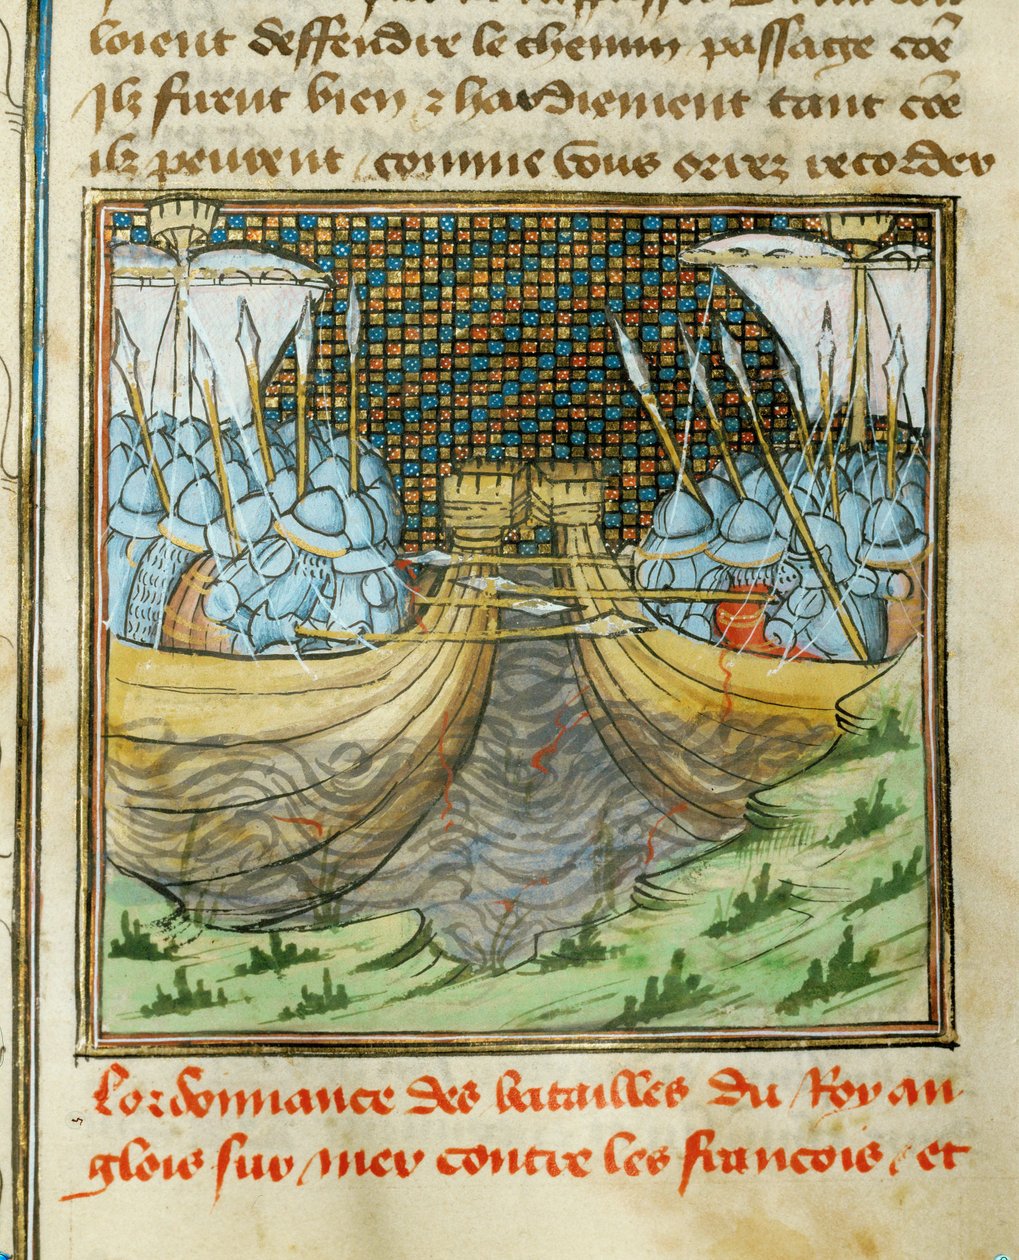 loient deffendre le chemin passage cōe
Ilz furent bien ⁊ hardiement tant cōe
ilz peurent / comme vous orrez recorder
Lordonnance des batailles du Roy an
glois sur mer contre les francois / et